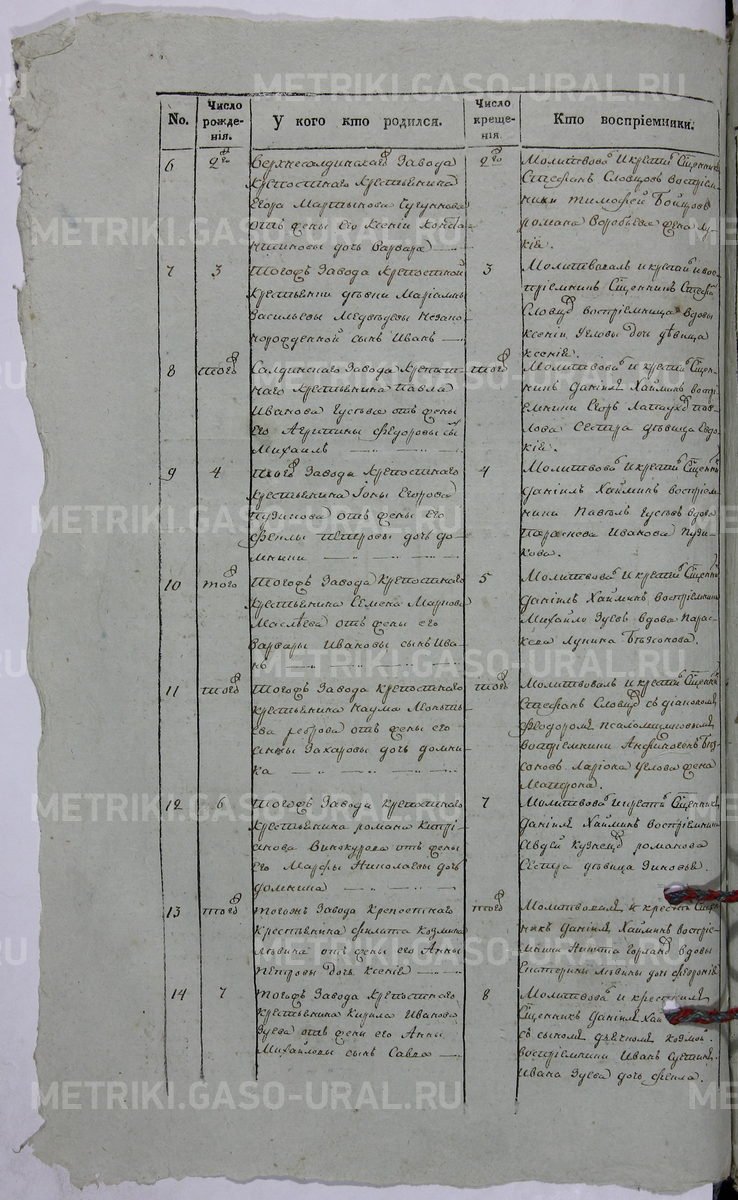 No.
Число рожденія.
У кого кто родился.
Число крещенія.
Кто воспріемники.
6
2го
Верхнесалдинскаго Завода
крепостнаго крестьянина
Егора Мартынова
отъ жены его Ксеніи
дочь Варвара
2го
Молитвова и крести Сщенникъ
Стефанъ Словцовъ воспріем
ники Тимофей Бойцовъ
романа Воробьева жена Лу
кія.
7
3
Тогожъ Завода крепостной
крестьянки девки Маріамны
Васильевы Медведевы незако
норожденной сынъ Иванъ
3
Молитвовалъ и крестилъ и вос
пріемникъ Сщенникъ Стефа
Словцо воспріемница вдовы
Ксеніи Угловы дочь девица
Ксенія.
8
того
Салдинскаго Завода крепост
наго крестьянина Павла
Иванова Густева отъ жены
его Агрипины Федоровы сы
Михаилъ
того
Молитвова и крести Сщен
никъ Даніилъ Хайминъ воспрі
емники Егоръ Пав
лова Сестра девица Евдо
кія.
9
4
Того Завода крепостнаго
крестьянина Іоны Егорова
Пузикова отъ жены его
Феклы Петровы дочь До
мники
4
Молитвова и крести Сщенни
Даніилъ Хайминъ воспріем
ники Павелъ Густевъ вдова
Параскева Иванова Пузи
кова.
10
того
Тогожъ Завода крепостнаго
крестьянина Семена Маркова
Маслева отъ жены его
Варвары Ивановы сынъ Ива
нъ
5
Молитвова и крести Сщенни
Даніилъ Хайминъ воспріемники
Михайло Зуевъ вдова Парас
кева Лунина
11
того
Тогожъ Завода крепостнаго
крестьянина Наума Леонть
ева реброва отъ жены его
Анны Захаровы дочь Домни
ка
того
Молитвовалъ и крести Сщенни
Стефанъ Словцо съ діакономъ
Феодоромъ Псаломщиковымъ
воспріемники
Ларіона Углова жена
Матрона.
12
6
Тогожъ Завода крепостнаго
крестьянина романа Кипрі
анова Винокурова отъ жены
его Марфы Николаевы дочь
Домника
7
Молитвова и крести Сщенникъ
Даніилъ Хайминъ воспріемники
Авдей Кузнецо романова
Сестра девица Зиновья.
13
того
Тогожъ Завода крепостнаго
крестьянина Филата Козмина
Львина отъ жены его Анны
Петровы дочь Ксенія
того
Молитвовалъ и крести Сщен
никъ Даніилъ Хайминъ воспріе
мники Никита вдовы
Екатерины Львины дочь
14
7
Тогожъ Завода крепостнаго
крестьянина Кирила Иванова
Зуева отъ жены его Анны
Михайловы сынъ Савва
8
Молитвова и крестилъ
Сщенникъ Даніилъ Хай
съ сыномъ дьячкомъ Козмой.
воспріемники Иванъ
Ивана Зуева дочь Фекла.
METRIKI.GASO-URAL.RU